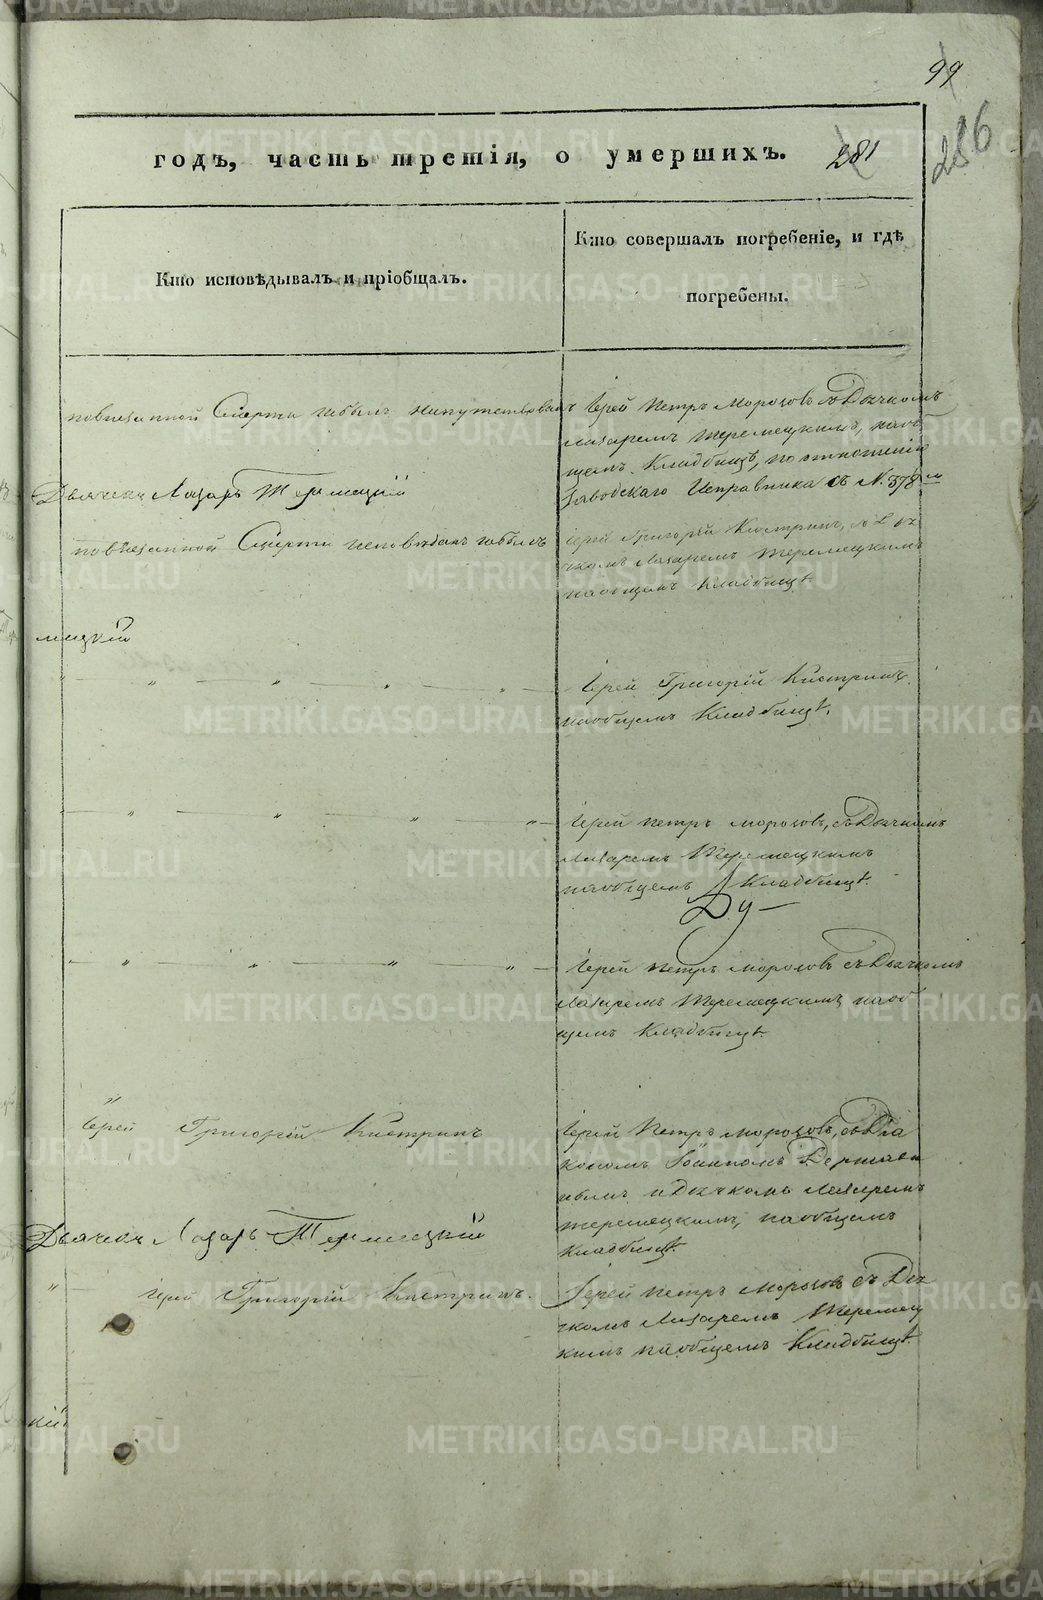 99
годъ, часть третія, о умершихъ.
281
286
Кто исповѣдывалъ и пріобщалъ.
Кто совершалъ погребеніе, и гдѣ
погребены.
Смерти небылъ напутствованъ
Іерей Петръ Морозовъ съ Дьячкомъ
Лазаремъ Теремецкимъ, наоб
щемъ Кладбищѣ, по отношенію
Заводскаго Исправника съ № 378м
Дьячекъ Лазарь Теремецкій
Смерти исповѣданъ небылъ
Іерей Григорій Кистринъ, съ Дья
чкомъ Лазаремъ Теремецкимъ
наобщемъ Кладбищѣ.
мецкій
Іерей Григорій Кистринъ
наобщемъ Кладбищѣ.
Іерей Петръ Морозовъ, съ Дьячкомъ
Лазаремъ Теремецкимъ
наобщемъ Кладбищѣ.
Ду—
Іерей Петръ Морозовъ съ Дьячкомъ
Лазаремъ Теремецкимъ наоб
щемъ Кладбищѣ.
Іерей Григорій Кистринъ
Іерей Петръ Морозовъ, съ Діа
кономъ Держави
нымъ и Дьячкомъ Лазаремъ
Теремецкимъ, наобщемъ
Кладбищѣ.
Дьячекъ Лазарь Теремецкій
Іерей Григорій Кистринъ.
Іерей Петръ Морозовъ съ Дья
чкомъ Лазаремъ Теремец
кимъ наобщемъ Кладбищѣ.
кій
METRIKI.GASO-URAL.RU